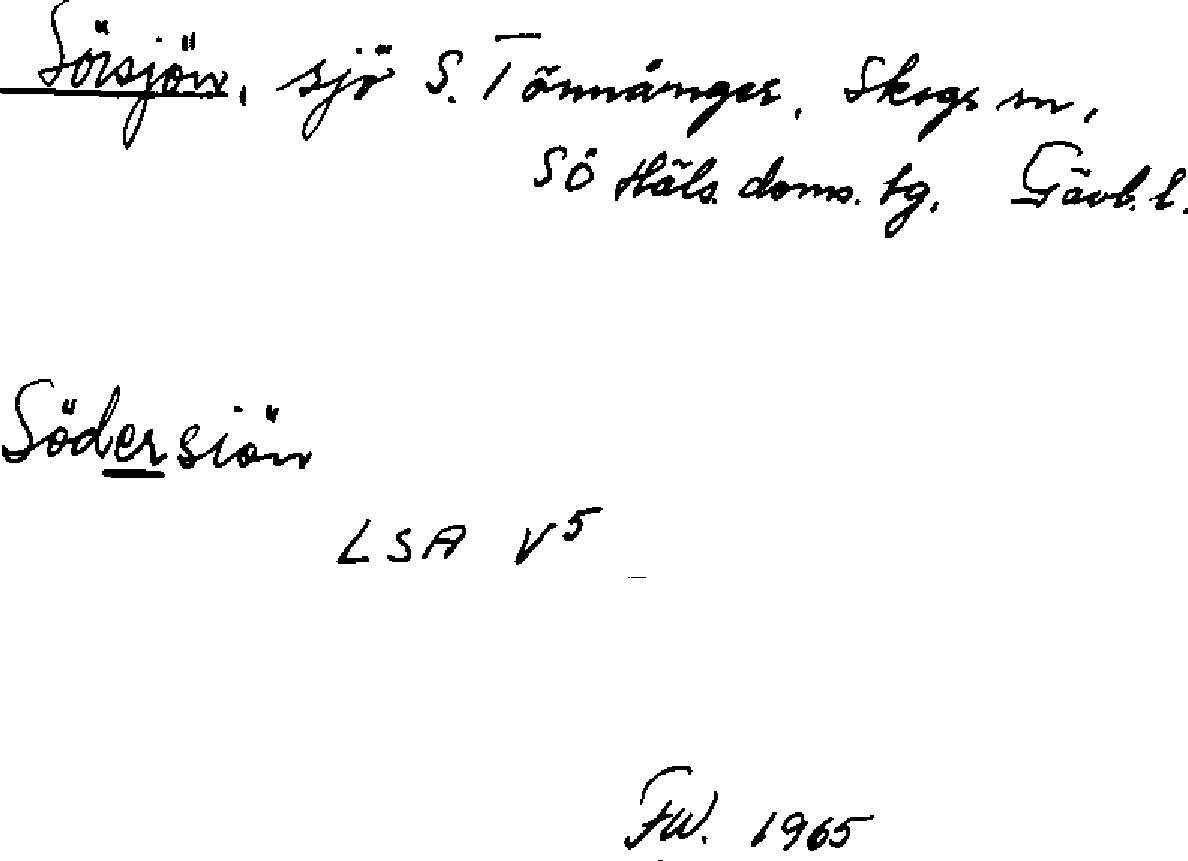 Sörsjön, sjö S. Tönnånger, Skogs sn,
SÖ Häls. doms. tg. Gävl. l.
Södersiön
LSA V5
FW. 1965